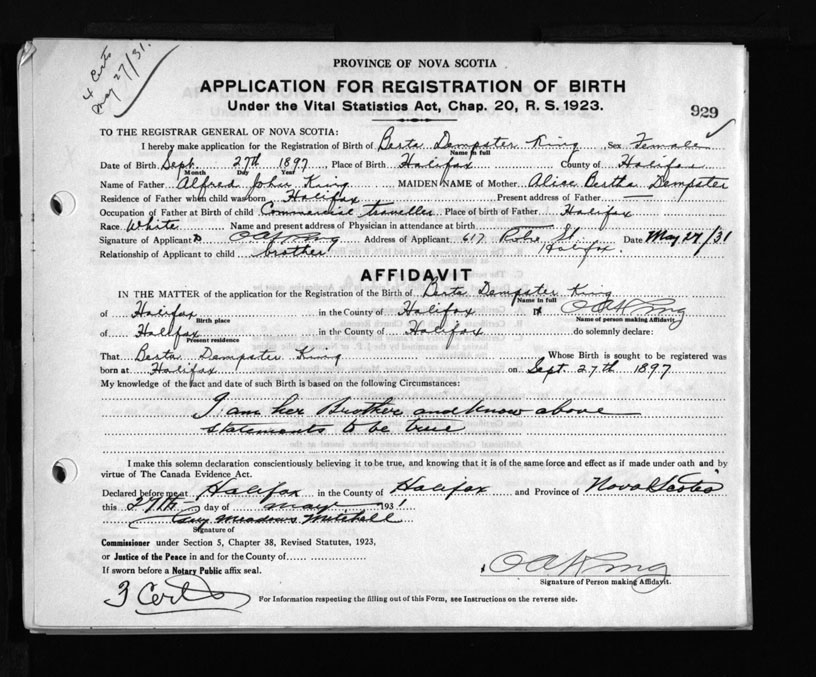 4 Certs
May 27/31.
PROVINCE OF NOVA SCOTIA
APPLICATION FOR REGISTRATION OF BIRTH
Under the Vital Statistics Act, Chap. 20, R. S. 1923.
929
TO THE REGISTRAR GENERAL OF NOVA SCOTIA:
I hereby make application for the Registration of Birth of Berta Dempster King Sex Female
Name in full
Date of Birth Sept. 27th 1897 Place of Birth Halifax County of Halifax
Month Day Year
Name of Father Alfred John King MAIDEN NAME of Mother Alice Bertha Dempster
Residence of Father when child was born Halifax Present address of Father —
Occupation of Father at Birth of child Commercial Traveller Place of birth of Father Halifax
Race White Name and present address of Physician in attendance at birth —
Signature of Applicant King Address of Applicant 617 Robie St Halifax. Date May 27/31
Relationship of Applicant to child brother
AFFIDAVIT
IN THE MATTER of the application for the Registration of the Birth of Berta Dempster King
Name in full
of Halifax in the County of Halifax I, King
Birth place Name of person making Affidavit
of Halifax in the County of Halifax do solemnly declare:
Present residence
That Berta Dempster King Whose Birth is sought to be registered was
born at Halifax on Sept. 27th 1897
My knowledge of the fact and date of such Birth is based on the following Circumstances:
I am her Brother and know above
statements to be true
I make this solemn declaration conscientiously believing it to be true, and knowing that it is of the same force and effect as if made under oath and by
virtue of The Canada Evidence Act.
Declared before me at Halifax in the County of Halifax and Province of Nova Scotia
this 27th day of May 1931
Guy Meadows Mitchell
Signature of
Commissioner under Section 5, Chapter 38, Revised Statutes, 1923,
or Justice of the Peace in and for the County of
If sworn before a Notary Public affix seal.
King
Signature of Person making Affidavit.
3 Certs
For Information respecting the filling out of this Form, see Instructions on the reverse side.